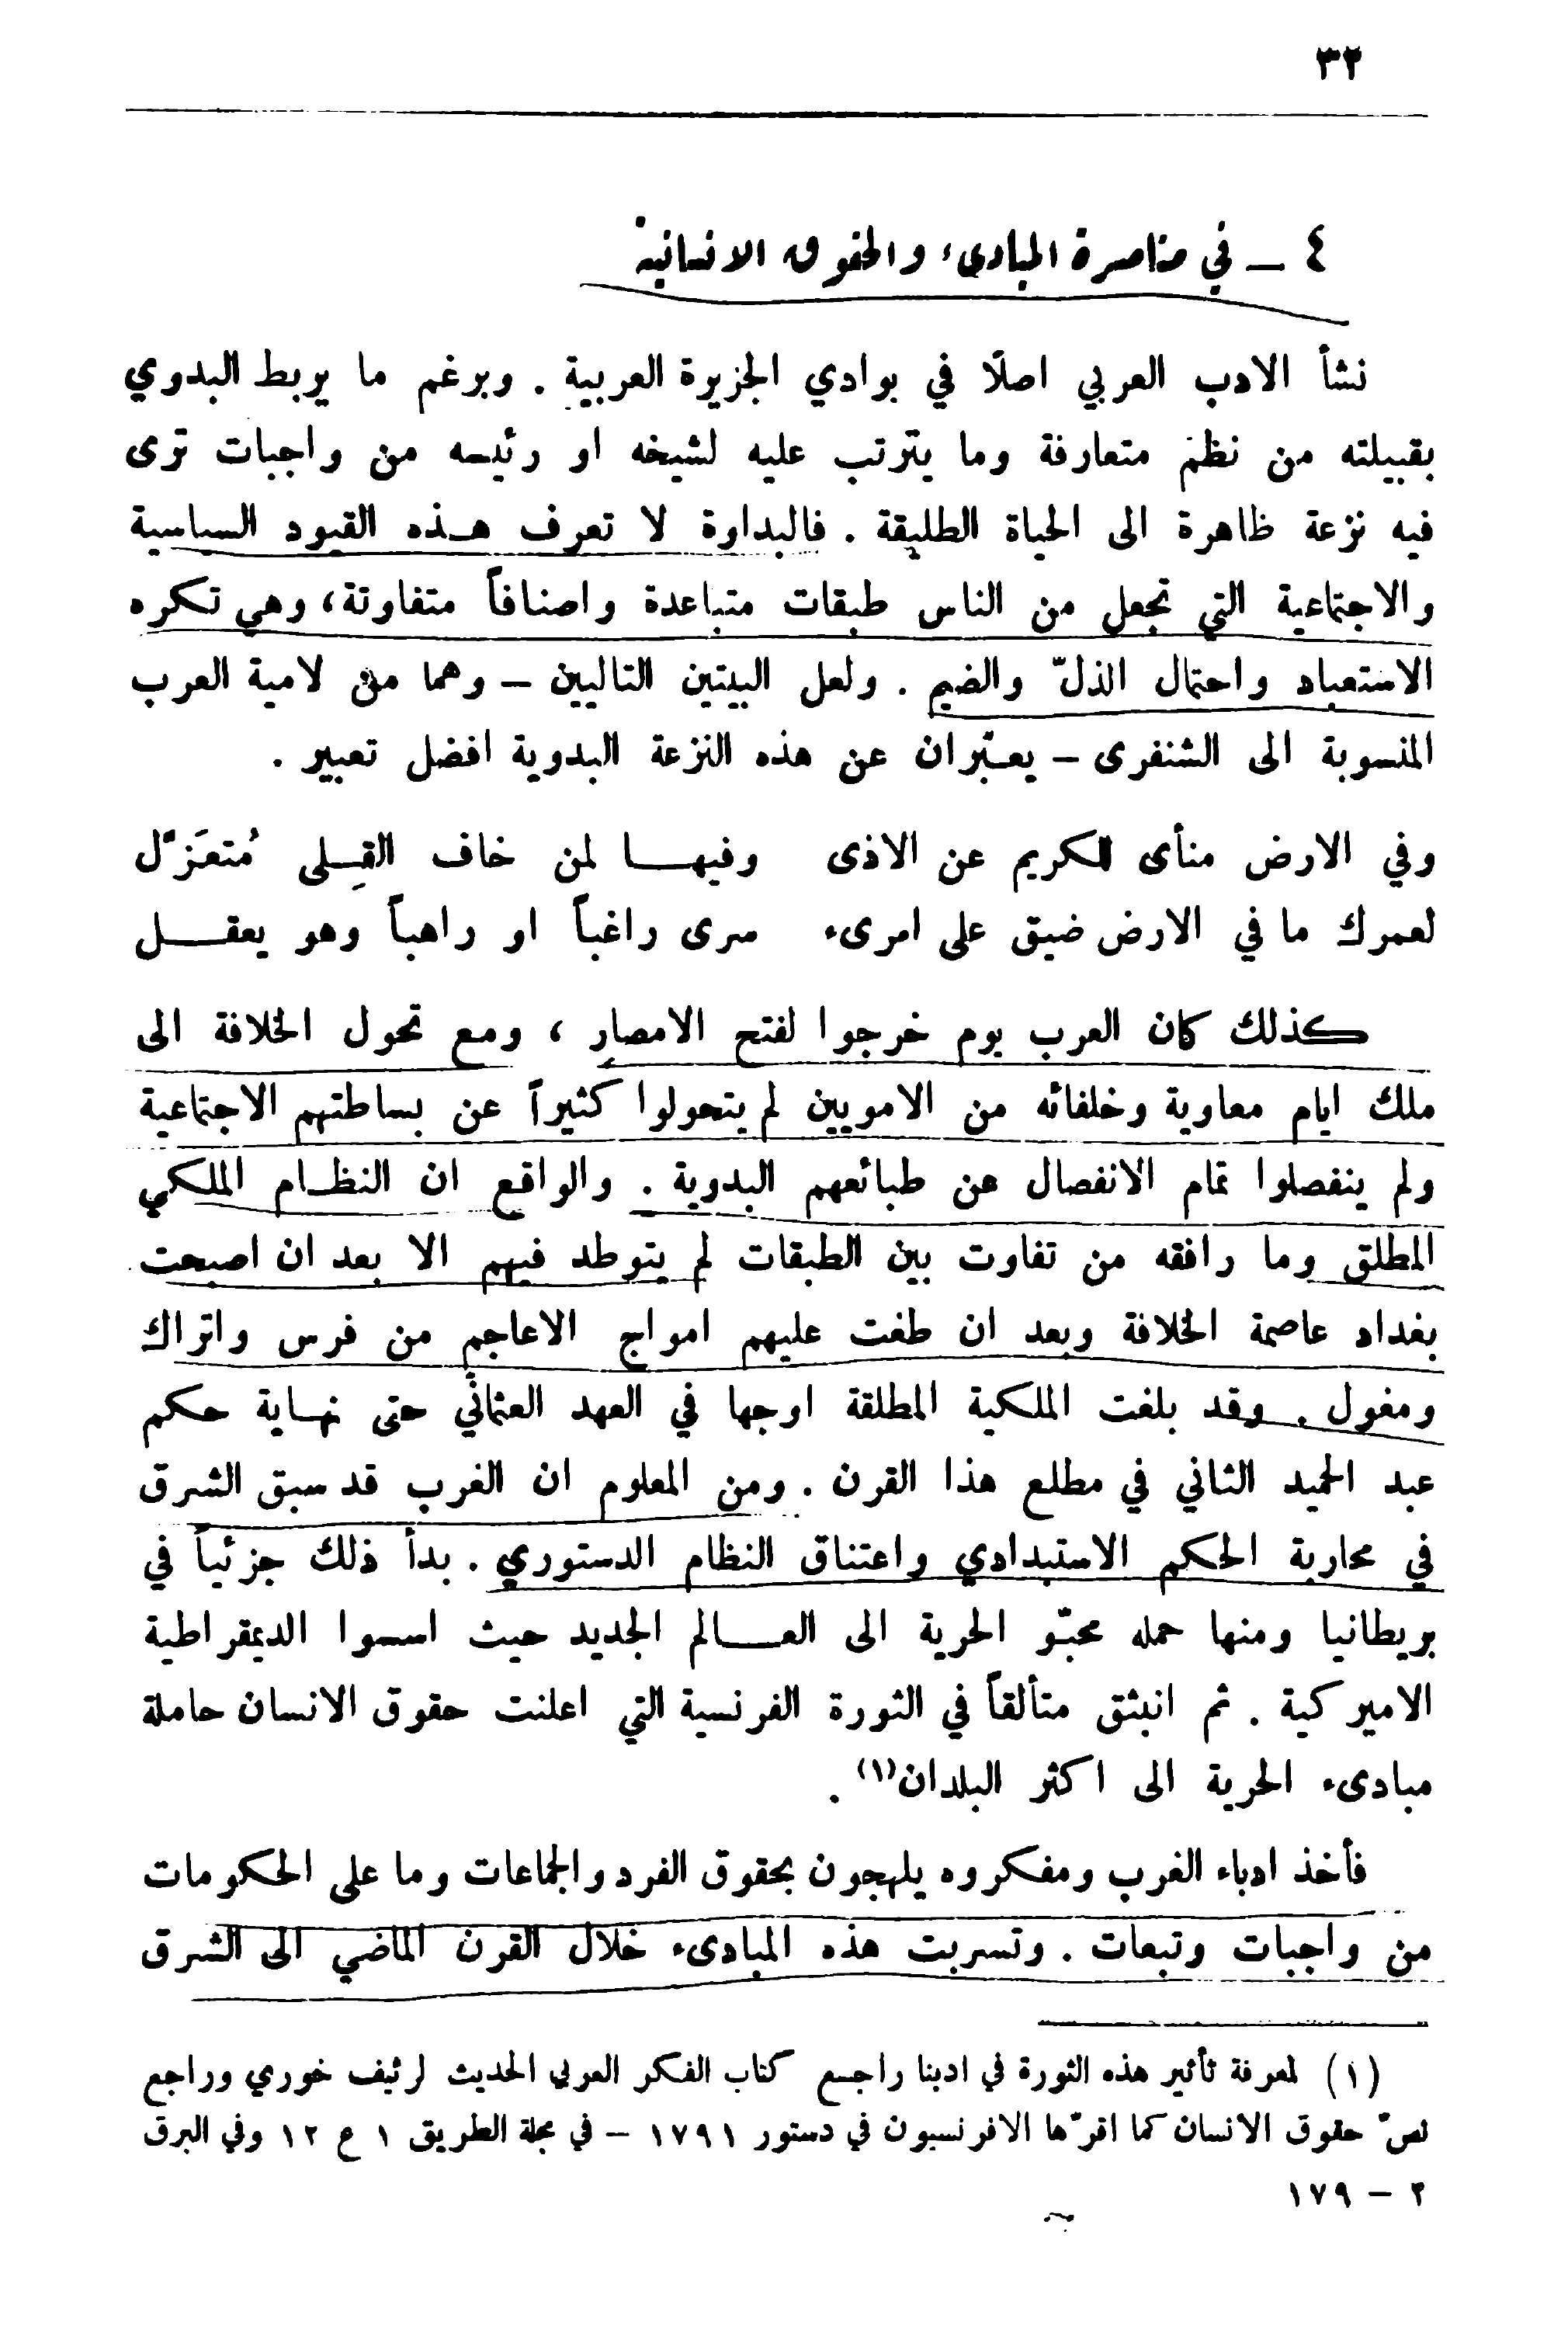 ٣٢
٤ – في مناصرة المبادىء والحقوق الانسانية
نشأ الادب العربي اصلًا في بوادي الجزيرة العربية . وبرغم ما يربط البدوي
بقبيلته من نظم متعارفة وما يترتب عليه لشيخه او رئيسه من واجبات ترى
فيه نزعة ظاهرة الى الحياة الطليقة . فالبداوة لا تعرف هـذه القيود السياسية
والاجتماعية التي تجعل من الناس طبقات متباعدة واصنافاً متفاوتة، وهي تكره
الاستعباد واحتمال الذلّ والضيم . ولعل البيتين التاليين – وهما من لامية العرب
المنسوبة الى الشنفرى – يعبّران عن هذه النزعة البدوية افضل تعبير .
وفي الارض منأى للكريم عن الاذى وفيهـا لمن خاف القِـلى مُتعَزّل
لعمرك ما في الارض ضيق على امرىء سرى راغباً او راهباً وهو يعقـل
كذلك كان العرب يوم خرجوا لفتح الامصار ، ومع تحول الخلافة الى
ملك ايام معاوية وخلفائه من الامويين لم يتحولوا كثيراً عن بساطتهم الاجتماعية
ولم ينفصلوا تمام الانفصال عن طبائعهم البدوية . والواقع ان النظـام الملكي
المطلق وما رافقه من تفاوت بين الطبقات لم يتوطد فيهم الا بعد ان اصبحت
بغداد عاصمة الخلافة وبعد ان طغت عليهم امواج الاعاجم من فرس واتراك
ومغول . وقد بلغت الملكية المطلقة اوجها في العهد العثماني حتى نهـاية حكم
عبد الحميد الثاني في مطلع هذا القرن . ومن المعلوم ان الغرب قد سبق الشرق
في محاربة الحكم الاستبدادي واعتناق النظام الدستوري . بدأ ذلك جزئياً في
بريطانيا ومنها حمله محبّو الحرية الى العـالم الجديد حيث اسسوا الديمقراطية
الاميركية . ثم انبثق متألقاً في الثورة الفرنسية التي اعلنت حقوق الانسان حاملة
مبادىء الحرية الى اكثر البلدان(١) .
فأخذ ادباء الغرب ومفكروه يلهجون بحقوق الفرد والجماعات وما على الحكومات
من واجبات وتبعات . وتسربت هذه المبادىء خلال القرن الماضي الى الشرق
(١) لمعرفة تأثير هذه الثورة في ادبنا راجـع كتاب الفكر العربي الحديث لرئيف خوري وراجع
نصّ حقوق الانسان كما اقرّها الافرنسيون في دستور ١٧٩١ – في مجلة الطريق ١ ع ١٢ وفي البرق
٢ – ١٧٩